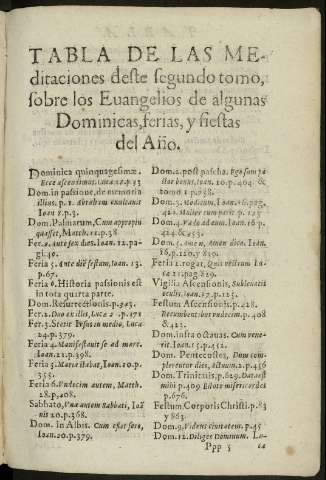 TABLA DE LAS ME-
ditaciones deste segundo tomo,
sobre los Euangelios de algunas
Dominicas, ferias, y fiestas
del Año.
Dominica quinquagesimæ.
Ecce ascendimus. Luca 18. p.13
Dom. in passione, de
illius. p.1. Abraham exultauit
Ioan 8. p.3.
Dom. Palmarum, Cum appropin
quasset, Matth. 21. p.38
Fer. 2. Ante sex dies. Ioan. 12. pa-
gi. 40.
Feria 5. Ante diē festum, Ioan. 13.
p.67.
Feria 6. Historia passionis est
in tota quarta parte.
Dom. Resurrectionis p.
Fer. 2. Duo ex illis, Luca 2 . p. 171
Fer. 3. Stetit Iesus in medio, Luca
24. p. 379.
Feria 4. Manifestauit se ad mare.
Ioan. 21. p. 398.
Feria 5. Maria stabat, Ioan. 20. p.
355.
Feria 6. Vndecim autem, Matth.
28. p. 408.
Sabbato, Vna autem Sabbati, Ioā
nis 20. p. 368.
Dom. In Albis. Cum esset sero,
Ioan. 20. p. 379.
Dom. 2. post pascha. Ego sum pa
stor bonus, Ioan. 10. p. 404. &
tomo 1. p. 938.
Dom. 3. Modicum, Ioan. 16. pag.
421. Mulier cum parit p. 125
Dom. 4. Vado ad eum. Ioan. 16. p.
424. & 453.
Dom. 5. Amen, Amen dico. Ioan.
16. p. 120. y 829.
Feria 2. rogat. Quis vestrum Lu-
ca 21. pag. 829.
Vigilia Ascensionis, Subleuatis
oculis, Ioan 17. p. 125.
Festum Ascensionis p. 428.
Recumbentibus vndecim, p. 408
& 423.
Dom. infra octauas. Cum vene-
rit. Ioan. 15. p. 452.
Dom. Pentecostes, Dum com-
plerentur dies, Actuum. 2. p. 456
Dom. Trinitatis, p. 629. Data est
mihi p. 409 Estote misericordes
p. 676.
Festum Corporis Christi. p. 83
y 863.
Dom. 9. Videns ciuitatem. p. 45
Dom. 12. Diliges Dominum. Lu-
Ppp 5 ca